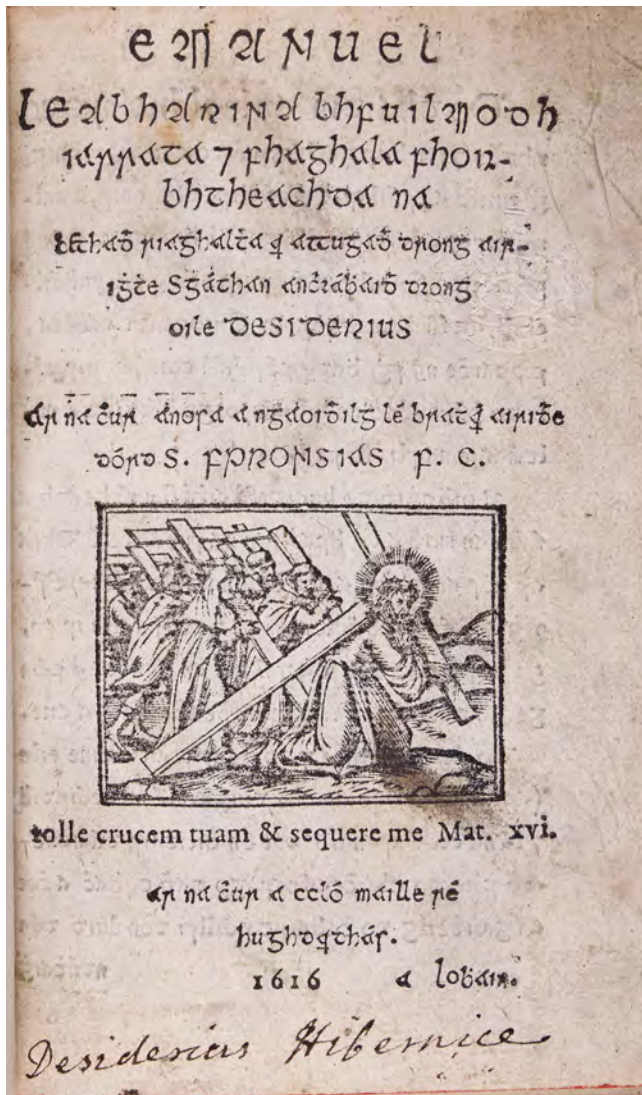 EMANUEL
LEABHAR INA BHFUIL MODH
iarrata ⁊ fhaghala fhoir-
bhtheachda na
riaghalta attugadh drong airi-
ighthe Sgáthán drong
oile DESIDERIUS
ar na chur anosa a ngaoidhilg lé airidhe
dórd S. FPRONSIAS F. C.
tolle crucem tuam & sequere me Mat. xvi.
ar na chur a ccló maille ré
hughdarthás.
1616 a Lobháin.
Desiderius Hibernice